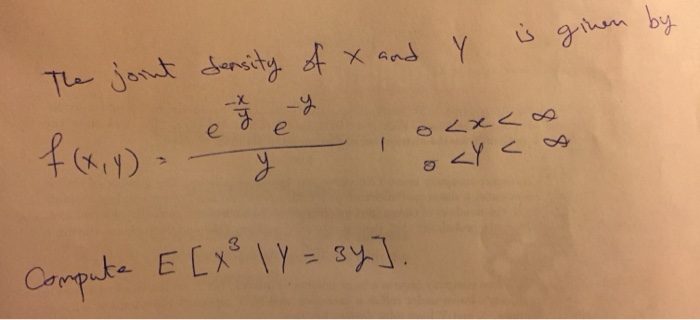 The joint density of X and Y is given by
f(x,y) = e^{-x/y} e^{-y} / y , 0 < x < ∞
0 < y < ∞
Compute E[X^3 \ Y = 3y].